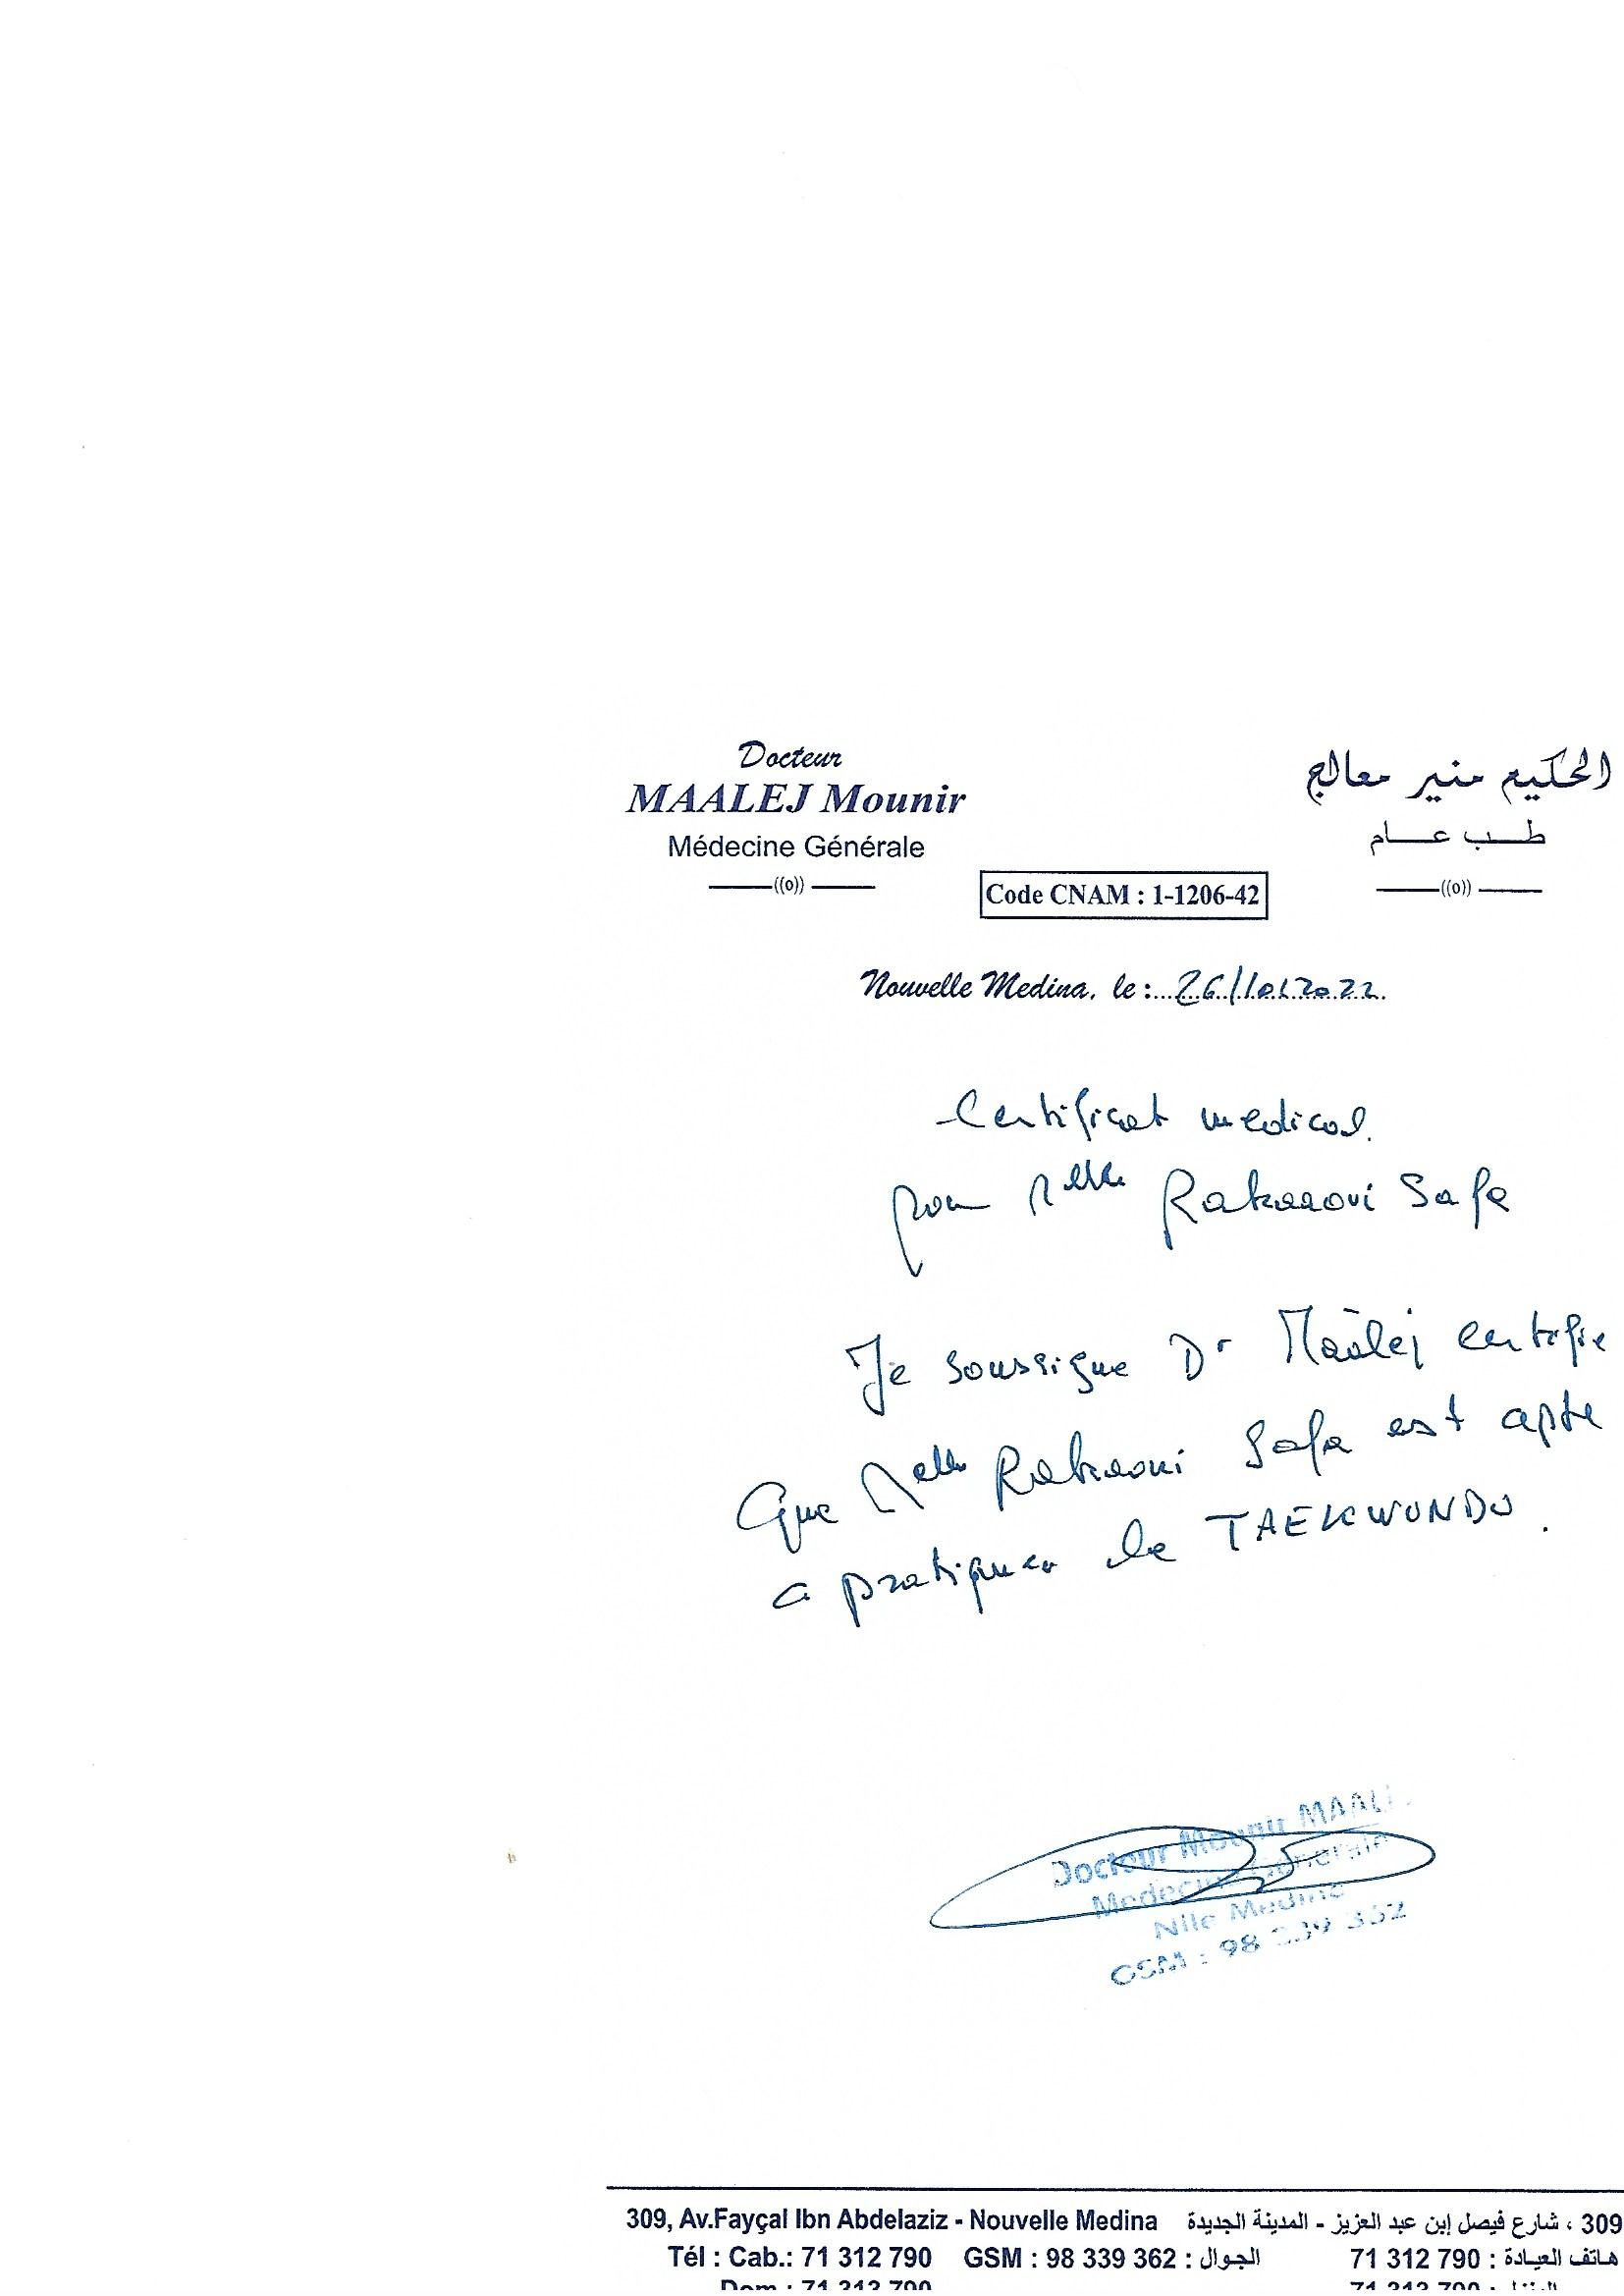 Docteur
MAALEJ Mounir
Médecine Générale
((o))
الحكيم منير معالج
طب عام
((o))
Code CNAM : 1-1206-42
Nouvelle Medina, le : 26/10/2022
Certificat medical.
pour Melle Rakraoui Safa
Je soussigne Dr Maâlej certifie
Que Melle Rakraoui Safa est apte
a pratiquer le TAEKWONDO.
Docteur Mounir MAALEJ
Medecine Generale
Nlle Medina
GSM : 98 339 362
309, Av.Fayçal Ibn Abdelaziz - Nouvelle Medina 309 ، شارع فيصل إبن عبد العزيز - المدينة الجديدة
Tél : Cab.: 71 312 790 GSM : 98 339 362 : الجوال هاتف العيادة : 71 312 790
Dom : 71 313 790 المنزل : 71 313 790